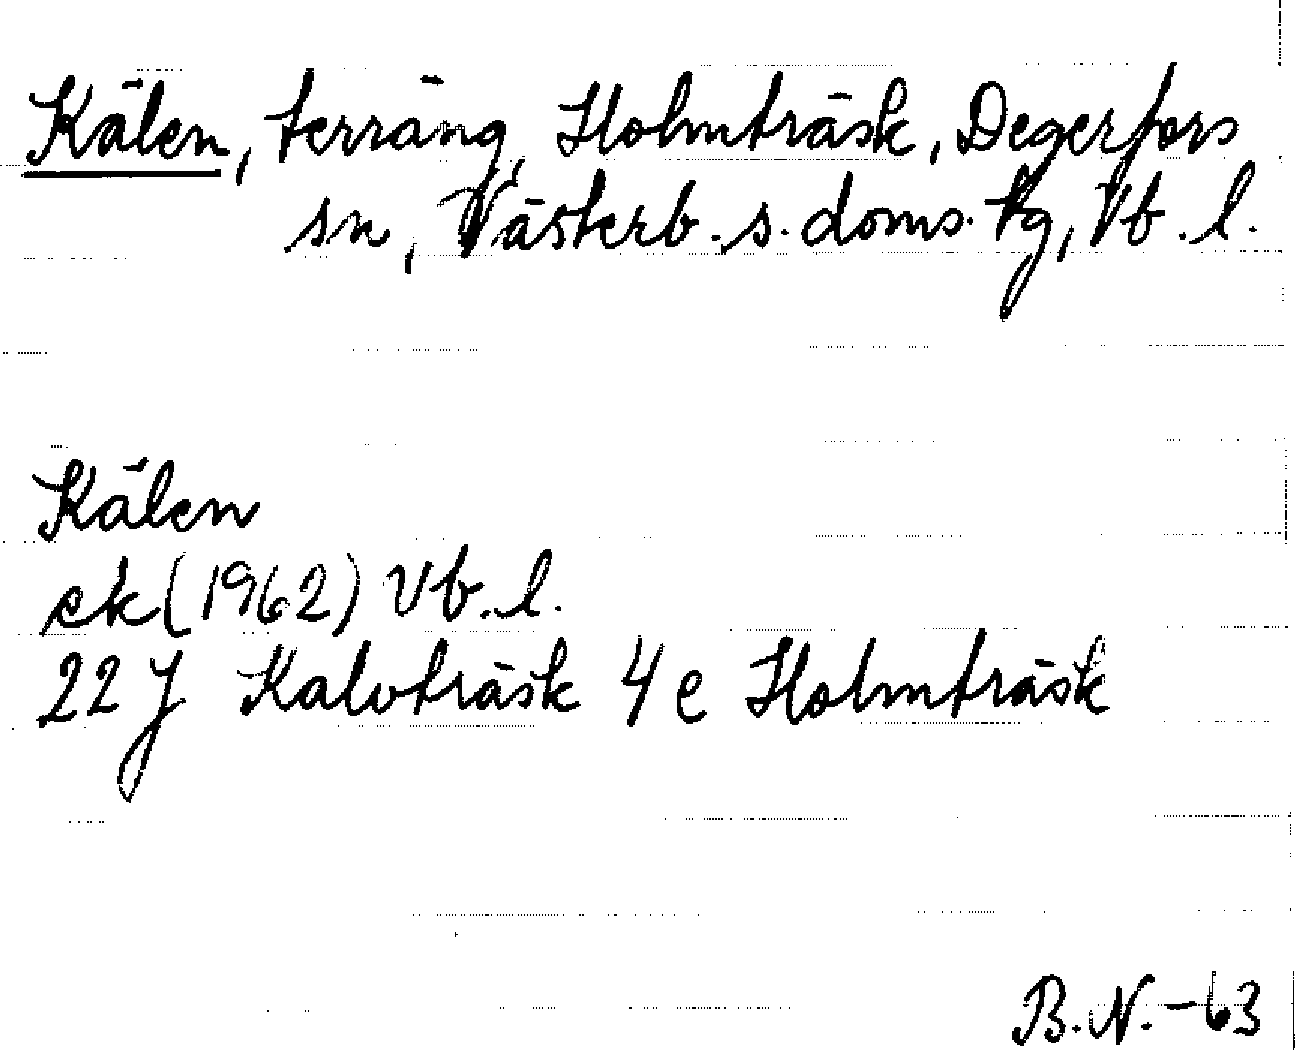 Kälen, terräng, Holmträsk, Degerfors
sn, Västerb. s. doms. tg, Vb. l.
Kälen
ek (1962) Vb. l.
22 J Kalvträsk 4 e Holmträsk
B.N. -63